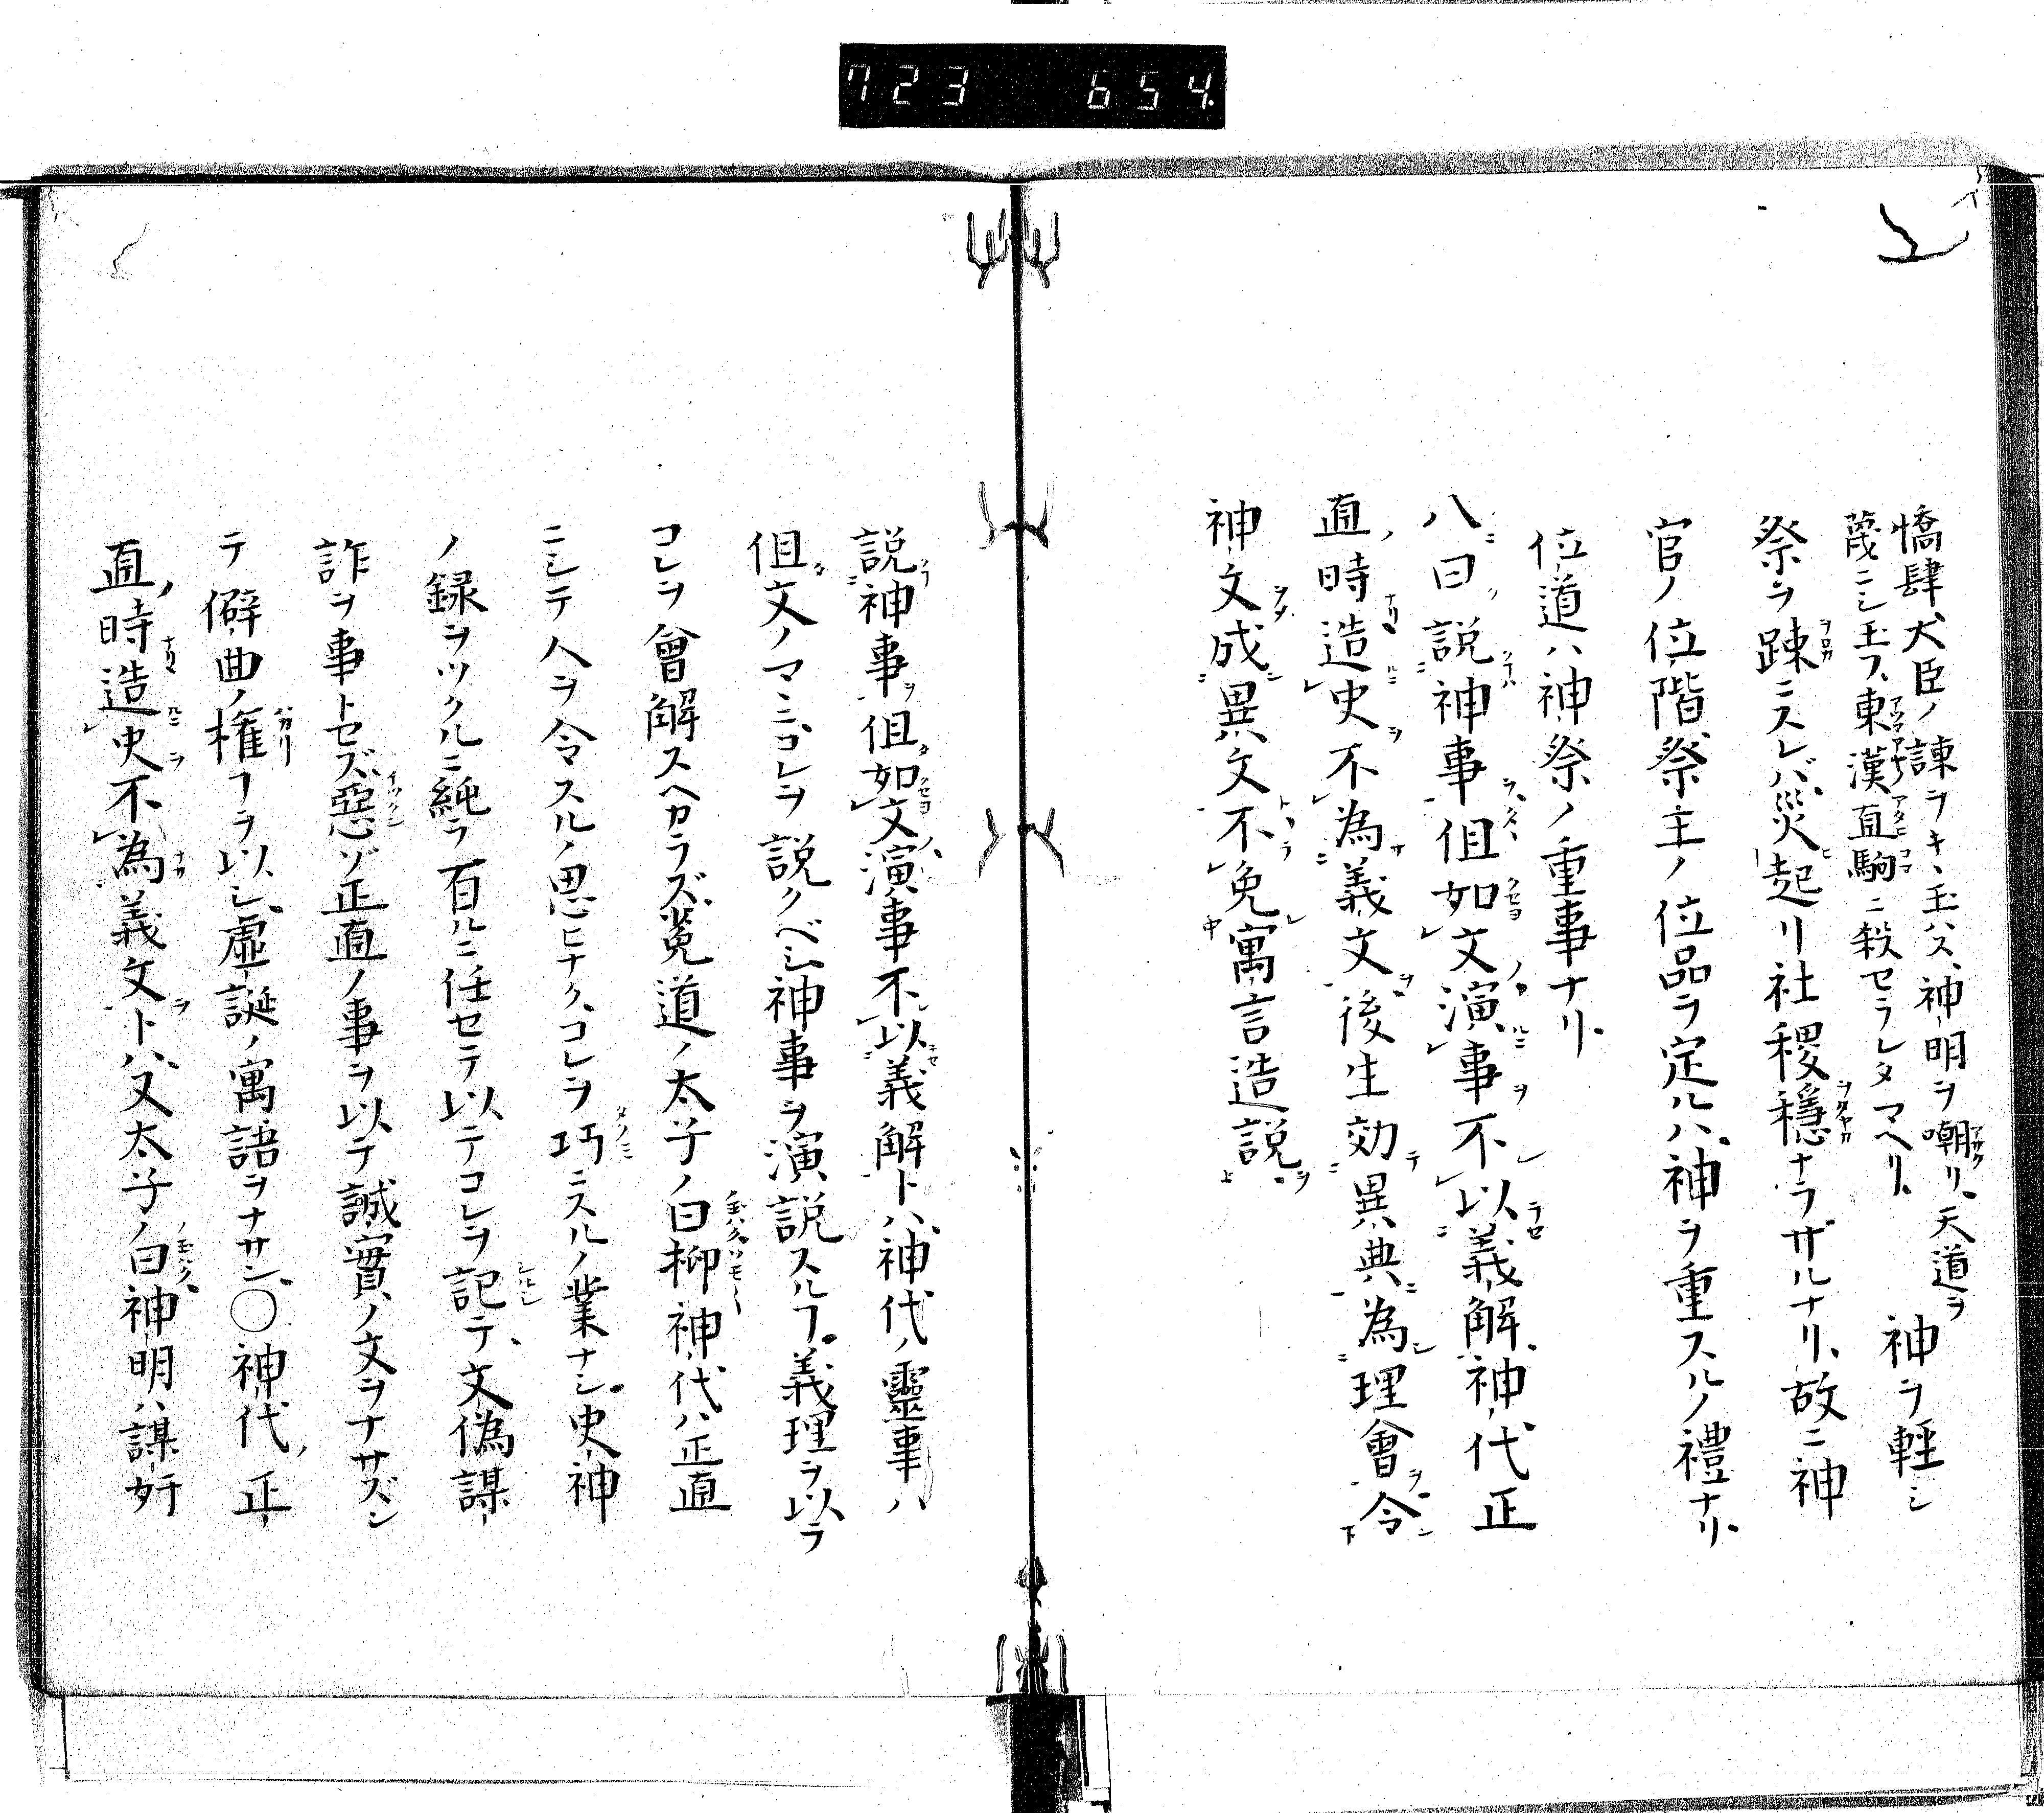 723 654
憍肆大臣ノ諌ヲキヽ玉ハス、神明ヲ嘲リ、天道ヲ
蔑ニシ玉フ、東漢直駒ニ殺セラレタマヘリ、
神ヲ軽シ
祭ヲ踈ニスレバ、災起リ社稷穩ナラザルナリ、故ニ神
官ノ位階、祭主ノ位品ヲ定ルハ、神ヲ重スルノ禮ナリ、
位道ハ神祭ノ重事ナリ、
八曰説神事但如文演事不以義解神代正
直時造史不為義文後生効異典為理會令
神文成異文不免寓言造説
説神事但如文演事不以義解トハ、神代ノ靈事ハ
但文ノマニ、コレヲ説クベシ、神事ヲ演説スルフ、義理ヲ以テ
コレヲ會解スヘカラズ、菟道ノ太子ノ曰抑神代ハ正直
ニシテ人ヲ令スルノ思ヒナク、コレヲ巧ニスルノ業ナシ、史神
ノ録ヲツクルニ純ラ有ルニ任セテ以テコレヲ記テ、文偽謀
詐ヲ事トセズ、惡ゾ正直ノ事ヲ以テ誠實ノ文ヲナサズシ
テ僻曲ノ権フラ以シ、虚誕ノ寓語ヲナサン、〇神代ノ正
直時造史不為義文トハ、又太子ノ曰神明ハ謀奸